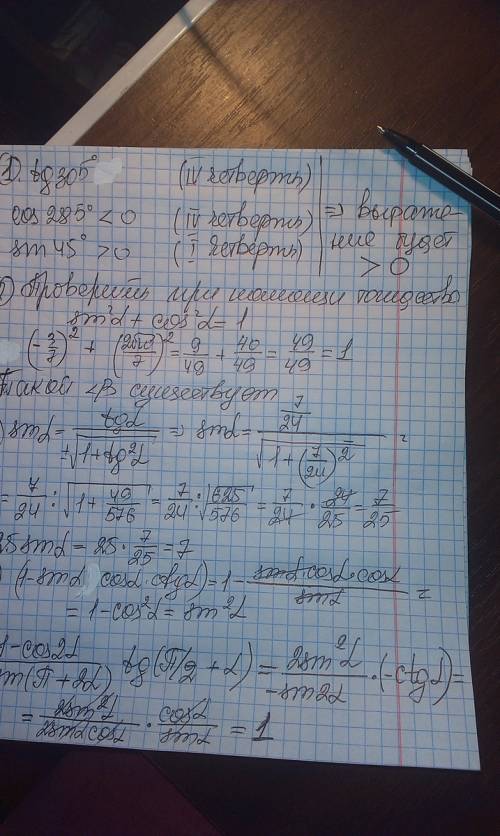 1) tg 305° (IV четверть)
cos 285° < 0 (IV четверть)
sin 45° > 0 (I четверть)
⇒ выраже-
ние будет
> 0
Проверить при помощи тождества
sin²α + cos²α = 1
(-3/7)² + (2√10/7)² = 9/49 + 40/49 = 49/49 = 1
Такой ∠β существует
) sinα = tgα/±√(1+tg²α) ⇒ sinα = (7/24)/√(1+(7/24)²) =
= 7/24 : √(1+49/576) = 7/24 : √(625/576) = 7/24 · 24/25 = 7/25
25 sinα = 25 · 7/25 = 7
) (1-sinα cosα·ctgα) = 1 - sinα·cosα·cosα/sinα =
= 1-cos²α = sin²α
1-cos2α/sin(П+2α) tg(П/2+α) = 2sin²α/-sin2α · (-ctgα) =
= 2sin²α/2sinαcosα · cosα/sinα = 1